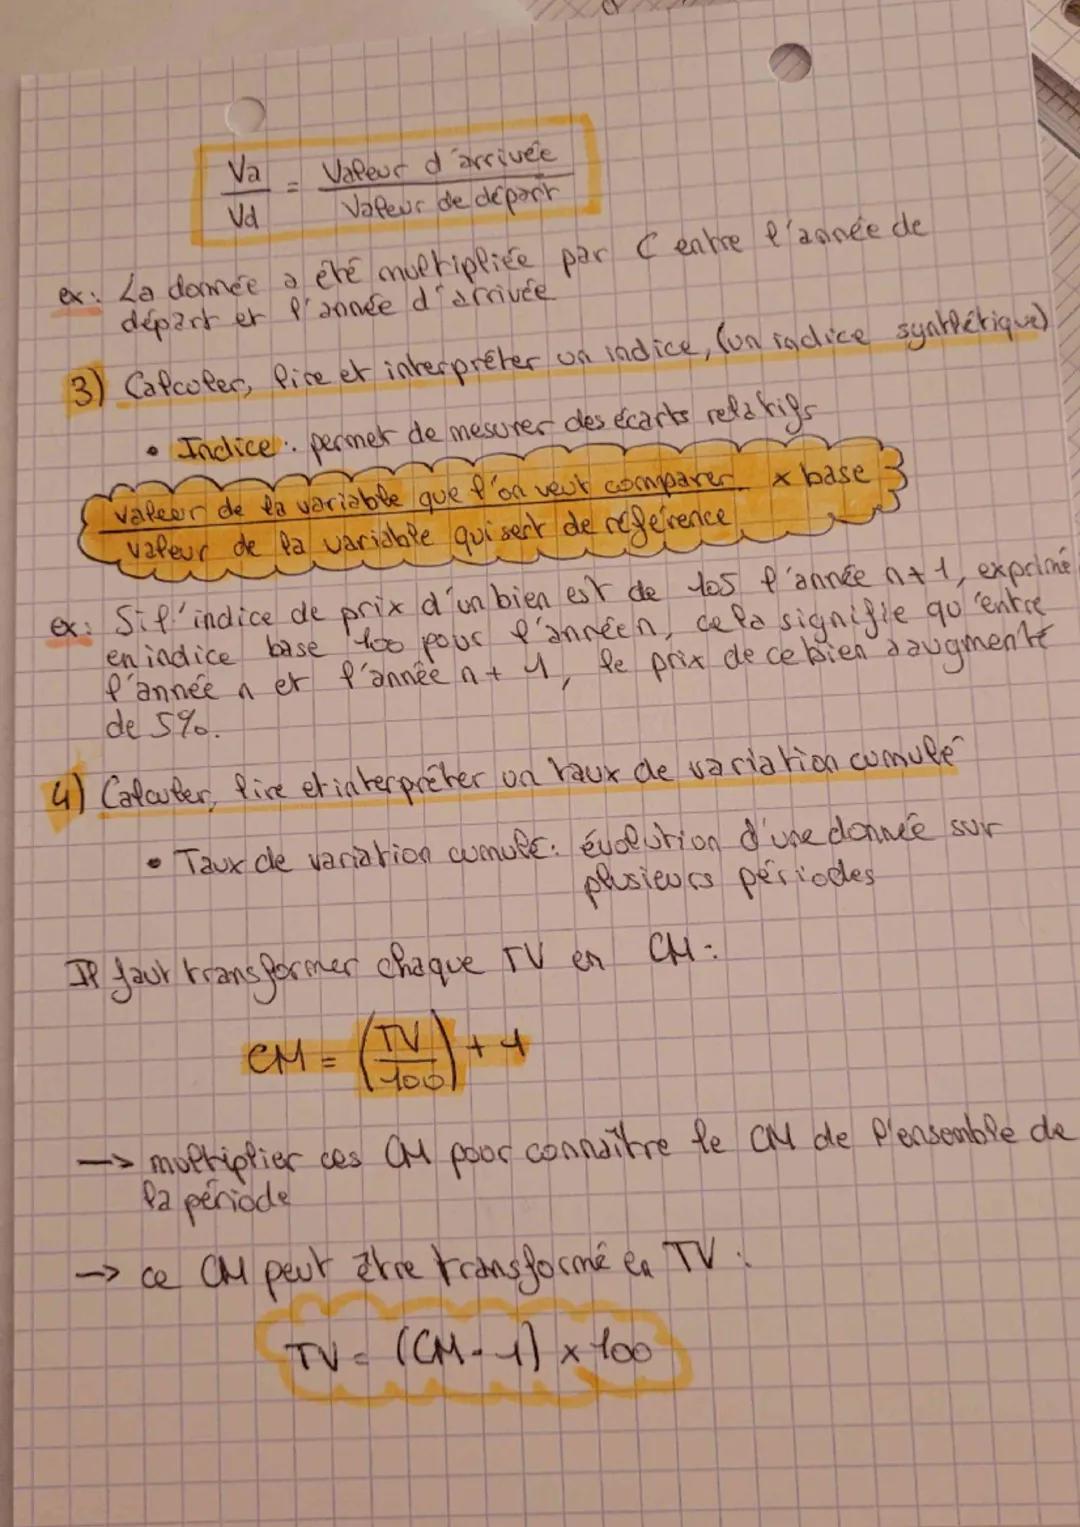 Va = Valeur d'arrivée
Vd Valeur de départ
ex: La donnée a été multipliée par C entre l'année de
départ et l'année d'arrivée
3) Calculer, lire et interpréter un indice, (un indice synthétique)
• Indice : permet de mesurer des écarts relatifs
valeur de la variable que l'on veut comparer x base
valeur de la variable qui sert de référence
ex: Si l'indice de prix d'un bien est de 105 l'année n+1, exprimé
en indice base 100 pour l'année n, cela signifie qu'entre
l'année n et l'année n+1, le prix de ce bien a augmenté
de 5%.
4) Calculer, lire et interpréter un taux de variation cumulé
• Taux de variation cumulé: évolution d'une donnée sur
plusieurs périodes
Il faut transformer chaque TV en CM :
CM = (TV/100) + 1
--> multiplier ces CM pour connaître le CM de l'ensemble de
la période
--> ce CM peut être transformé en TV :
TV = (CM - 1) x 100